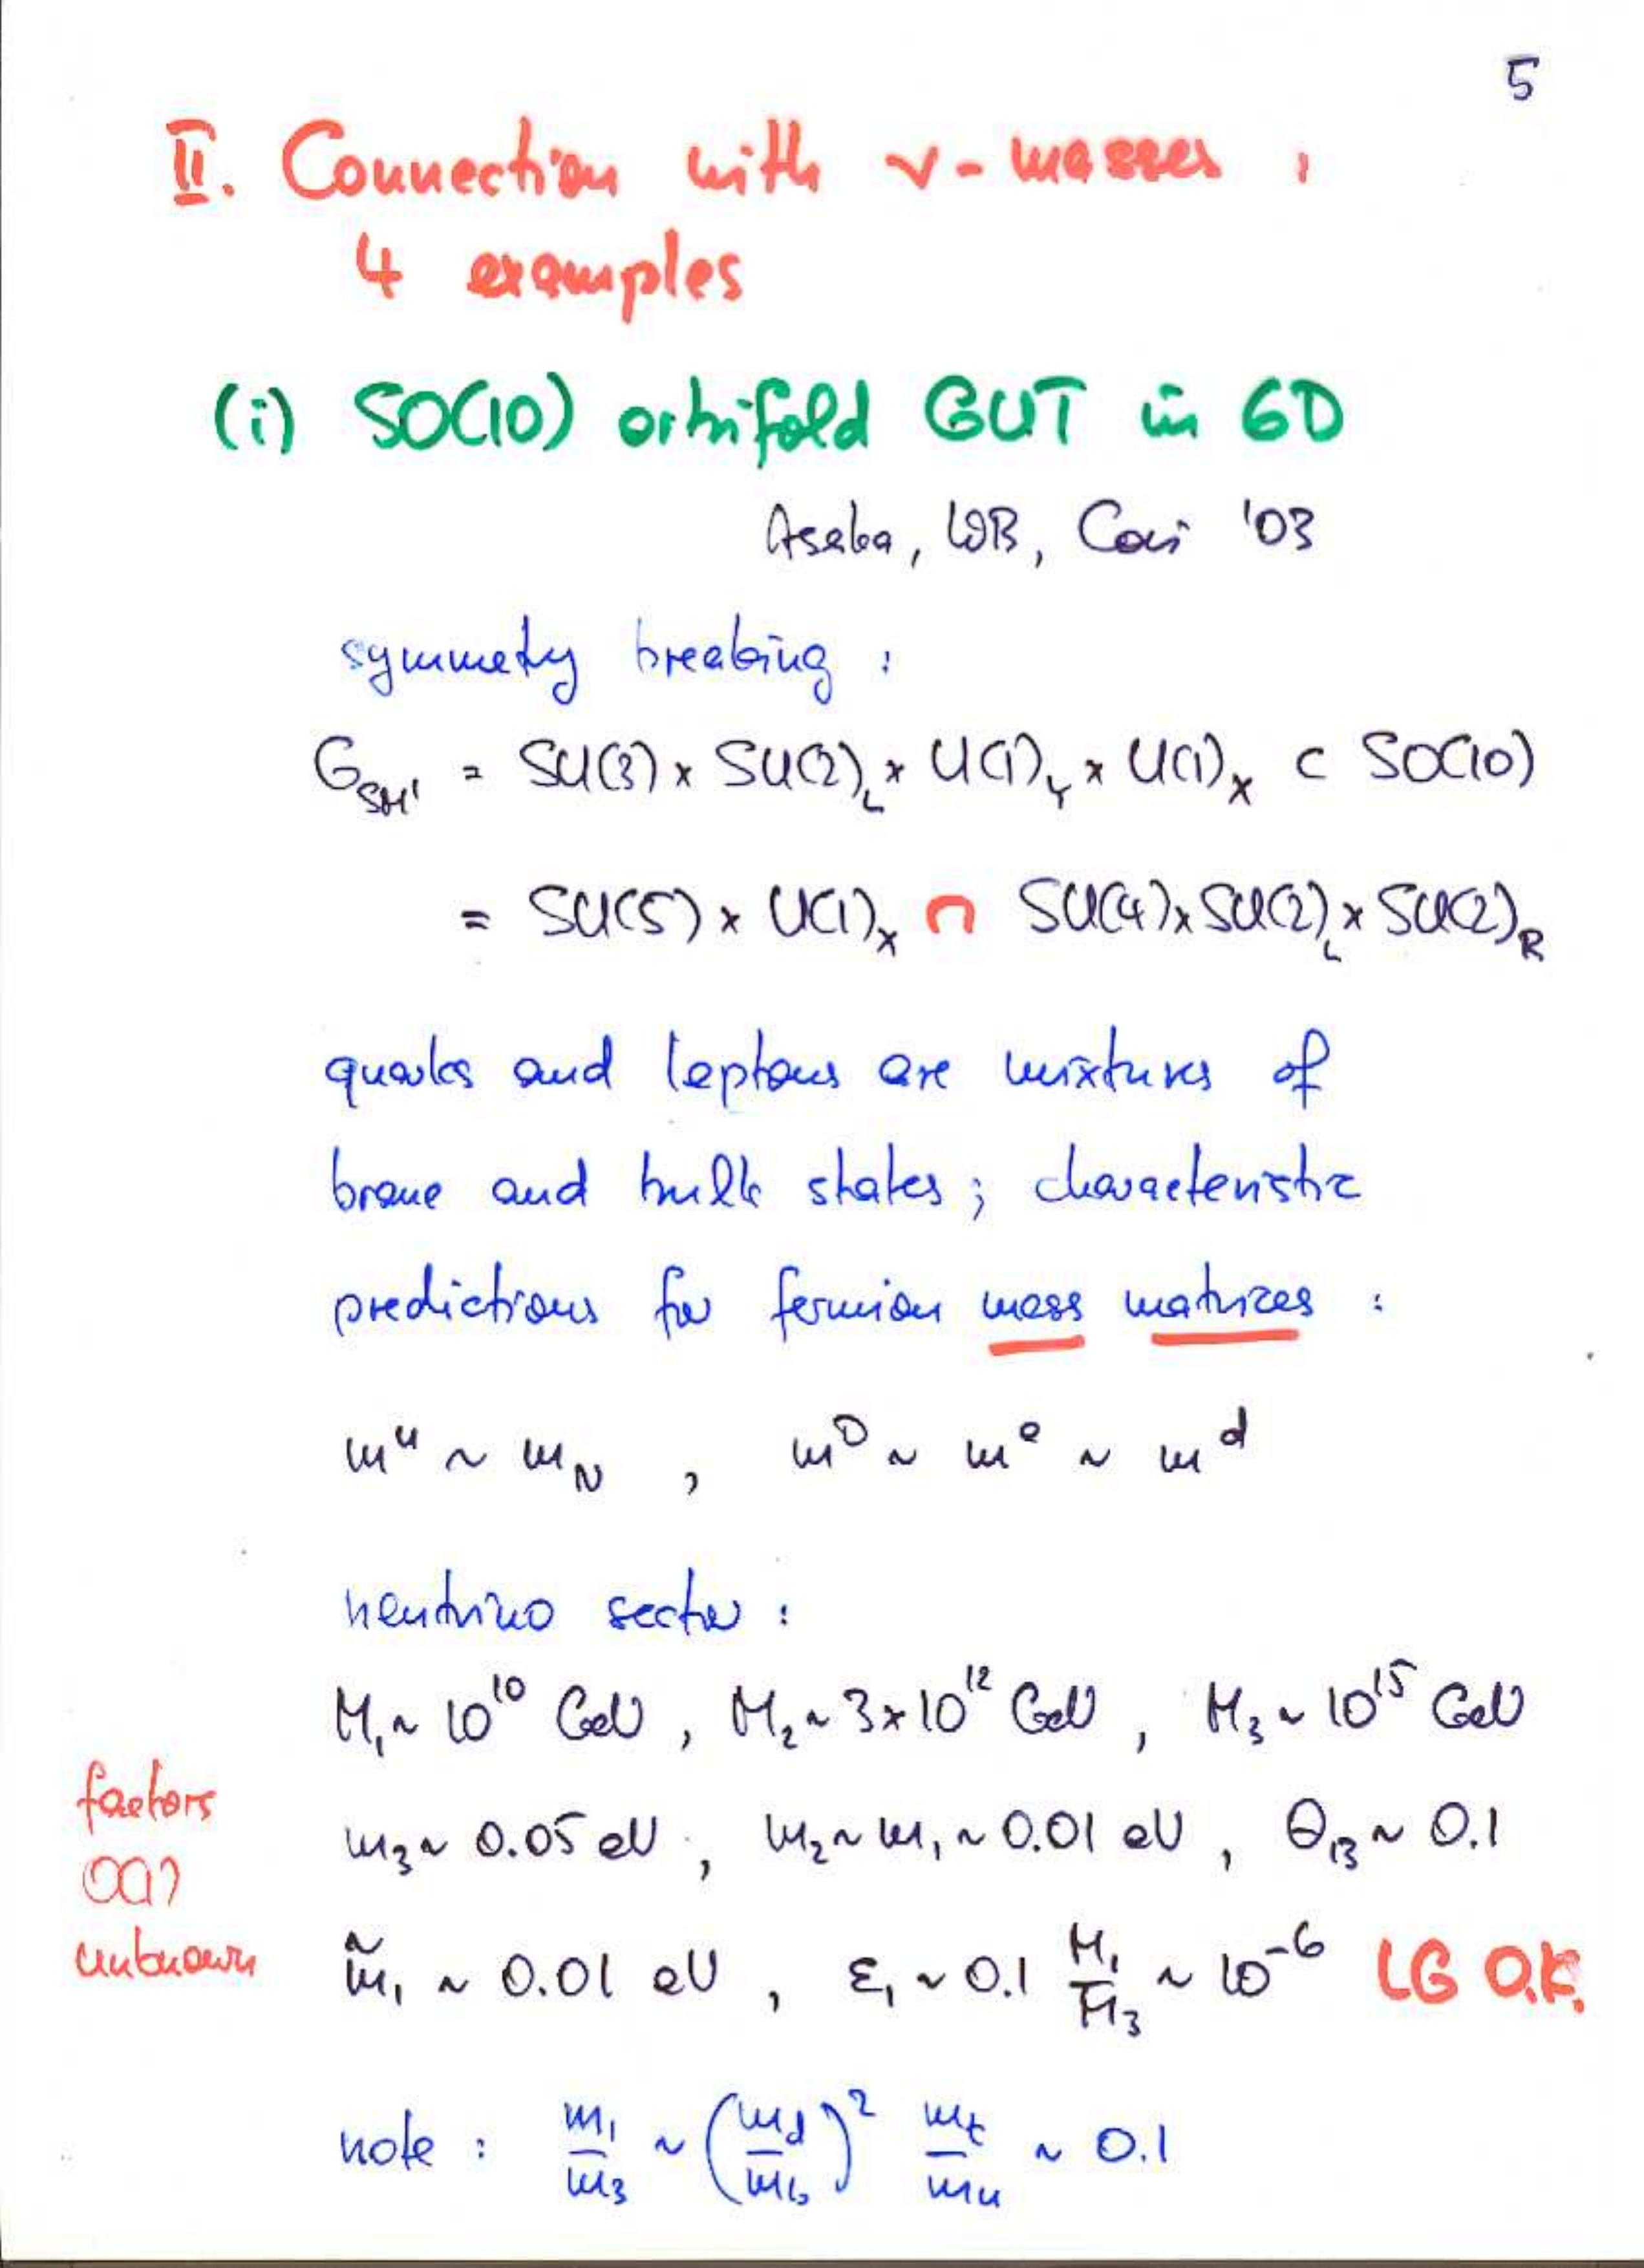 5
II. Connection with ν-masses :
4 examples
(i) SO(10) orbifold GUT in 6D
Asaka, WB, Covi '03
symmetry breaking :
G_SM' = SU(3) × SU(2)_L × U(1)_Y × U(1)_X ⊂ SO(10)
= SU(5) × U(1)_X ∩ SU(4) × SU(2)_L × SU(2)_R
quarks and leptons are mixtures of
brane and bulk states ; characteristic
predictions for fermion mass matrices :
m^u ~ m_N , m^D ~ m^e ~ m^d
neutrino sector :
M_1 ~ 10^10 GeV , M_2 ~ 3×10^12 GeV , M_3 ~ 10^15 GeV
factors
O(1)
unknown
m_3 ~ 0.05 eV , m_2 ~ m_1 ~ 0.01 eV , Θ_13 ~ 0.1
m̃_1 ~ 0.01 eV , ε_1 ~ 0.1 M_1/M_3 ~ 10^-6 LG O.K.
note : m_1/m_3 ~ (m_d/m_b)^2 m_t/m_u ~ 0.1